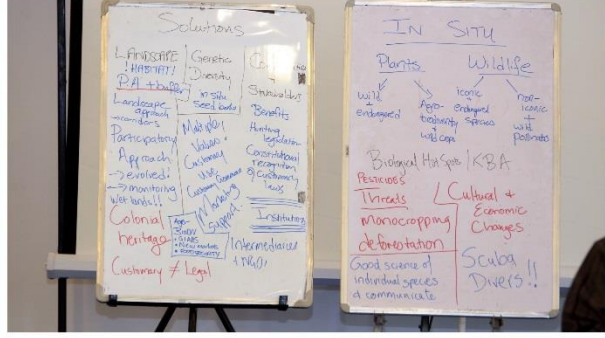 Solutions
LANDSCAPE
! HABITAT!
P.A + buffer
Landscape
approach
→ corridors
Participatory
Approach
→ evolved!
→ monitoring
Wetlands!!
Colonial
heritage
Customary ≠ Legal
Genetic
Diversity
in situ
seed banks
Multiple!
Values
Customary
Use
Monitoring
Support.
Agro-
• New markets
Stakeholders
Benefits
Hunting
legislation
Constitutional
recognition
of customary
laws
Institution
Intermediaries
+ NGO!
IN SITU
Plants
Wildlife
wild
+
endangered
Agro-
biodiversity
+
iconic
+
endangered
species
non-
iconic
+
wild
pollinators
Biological Hot Spots / KBA
PESTICIDES
Threats
monocropping
deforestation
Cultural +
Economic
Changes
Good science of
individual species
& communicate
Scuba
Divers!!